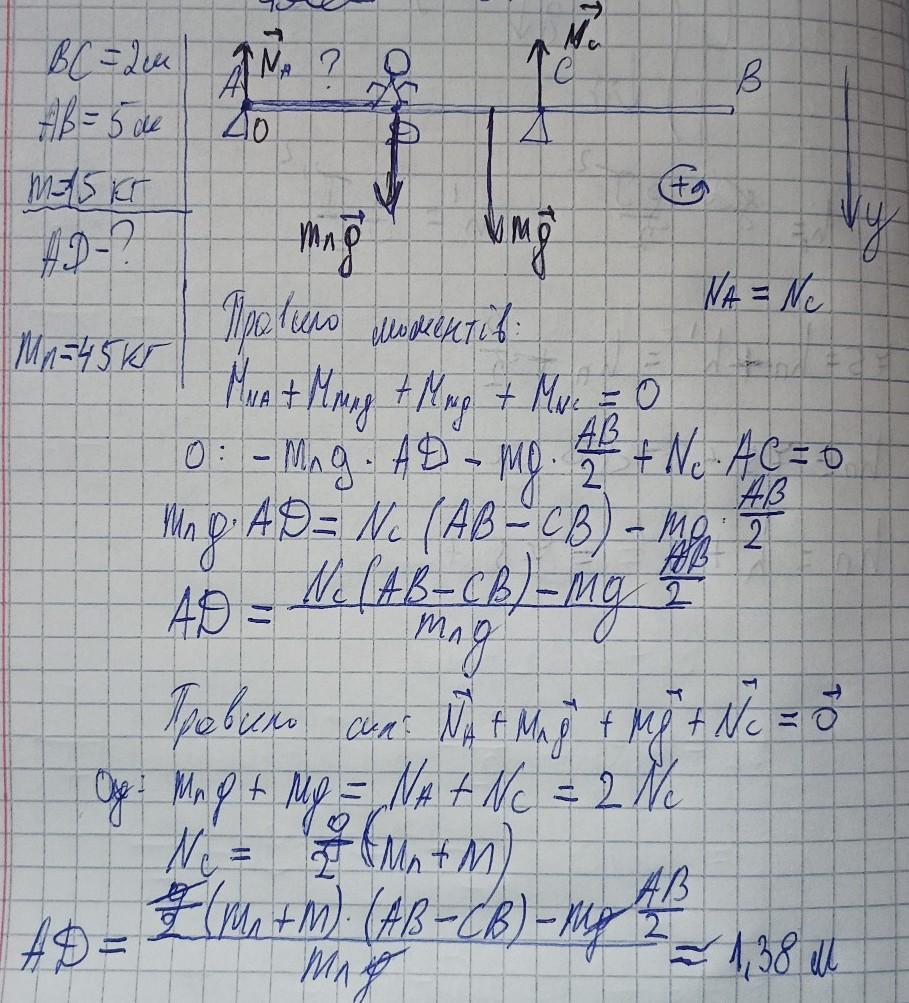 BC = 2м
AB = 5м
m=15 кг
AD-?
mп=45кг
N⃗A
?
N⃗c
A
O
D
C
B
+
mпg⃗
mg⃗
y
NA = Nc
Правило моментів:
MNA + Mmпg + Mmg + MNc = 0
O: - mпg · AD - mg · AB/2 + Nc · AC = 0
mпg · AD = Nc (AB - CB) - mg · AB/2
AD = (Nc (AB - CB) - mg AB/2) / mпg
Правило сил: N⃗A + mпg⃗ + mg⃗ + N⃗c = 0⃗
Oy: mпg + mg = NA + Nc = 2 Nc
Nc = g/2 (mп + m)
AD = (g/2 (mп + m) · (AB - CB) - mg AB/2) / mпg ≈ 1,38 м